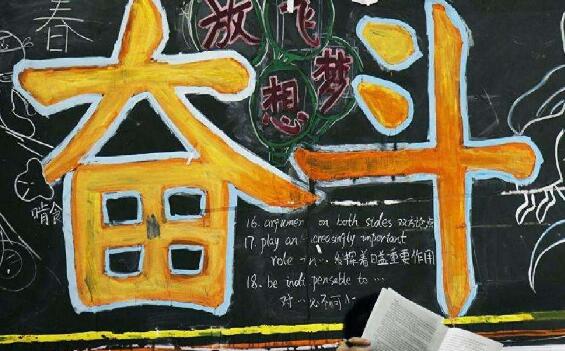 春
放飞
梦想
奋斗
16. argumen on both sides 双方论点
17. play an increasingly important
role in ... 发挥着日益重要作用
18. be indispensable to ...
对 ... 必不可少